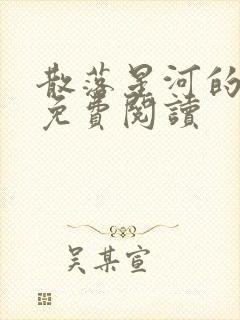 散落星河的
免費閱讀
吴某宣